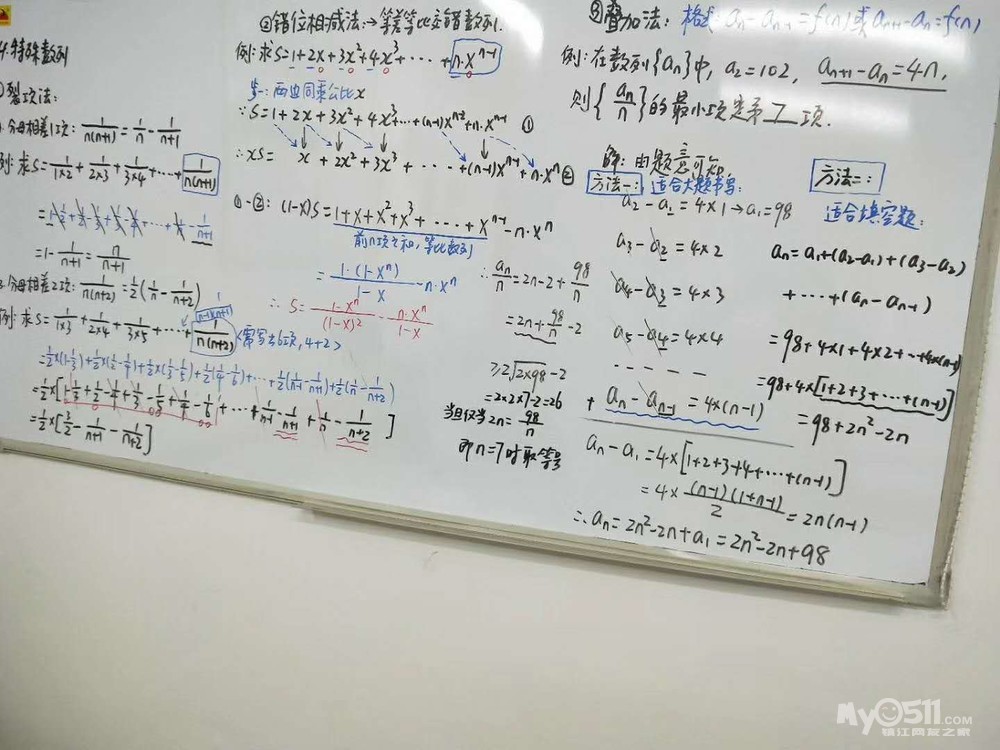 4.特殊数列
①裂项法:
1.分母相差1项: 1/n(n+1) = 1/n - 1/(n+1)
例: 求S = 1/(1×2) + 1/(2×3) + 1/(3×4) + ⋯ + 1/n(n+1)
= 1 - 1/2 + 1/2 - 1/3 + 1/3 - 1/4 + ⋯ + 1/n - 1/(n+1)
= 1 - 1/(n+1) = n/(n+1)
2.分母相差2项: 1/n(n+2) = 1/2(1/n - 1/(n+2))
1/(n-1)(n+1)
例: 求S = 1/(1×3) + 1/(2×4) + 1/(3×5) + ⋯ + 1/n(n+2) <需写出6项, 4+2>
= 1/2×(1-1/3) + 1/2×(1/2-1/4) + 1/2×(1/3-1/5) + 1/2(1/4-1/6) + ⋯ + 1/2(1/(n-1) - 1/(n+1)) + 1/2(1/n - 1/(n+2))
= 1/2×[1 - 1/3 + 1/2 - 1/4 + 1/3 - 1/5 + 1/4 - 1/6 + ⋯ + 1/(n-1) - 1/(n+1) + 1/n - 1/(n+2)]
= 1/2×[3/2 - 1/(n+1) - 1/(n+2)]
②错位相减法:→等差等比交错数列.
例: 求S=1+2x+3x²+4x³+⋯+n·xⁿ⁻¹
第一: 两边同乘公比x
∵S=1+2x+3x²+4x³+⋯+(n-1)xⁿ⁻²+n·xⁿ⁻¹ ①
∴xS= x+2x²+3x³+⋯+(n-1)xⁿ⁻¹+n·xⁿ ②
①-②: (1-x)S=1+x+x²+x³+⋯+xⁿ⁻¹-n·xⁿ
前n项之和, 等比数列
= 1·(1-xⁿ)/(1-x) - n·xⁿ
∴ S= (1-xⁿ)/(1-x)² - n·xⁿ/(1-x)
③叠加法: 格式: aₙ-aₙ₋₁=f(n)或aₙ₊₁-aₙ=f(n)
例: 在数列{aₙ}中, a₂=102, aₙ₊₁-aₙ=4n,
则{aₙ/n}的最小项是第 7 项.
解: 由题意可知,
方法一: 适合大题书写:
a₂-a₁=4×1→a₁=98
a₃-a₂=4×2
a₄-a₃=4×3
a₅-a₄=4×4
- - - - -
+ aₙ-aₙ₋₁=4×(n-1)
aₙ-a₁=4×[1+2+3+4+⋯+(n-1)]
=4×(n-1)(1+n-1)/2=2n(n-1)
∴aₙ=2n²-2n+a₁=2n²-2n+98
∴aₙ/n=2n-2+98/n
=2n+98/n-2
≥2√(2×98)-2
=2×2×7-2=26
当且仅当2n=98/n
即n=7时取等号
方法二:
适合填空题:
aₙ=a₁+(a₂-a₁)+(a₃-a₂)
+⋯+(aₙ-aₙ₋₁)
=98+4×1+4×2+⋯+4×(n-1)
=98+4×[1+2+3+⋯+(n-1)]
=98+2n²-2n
My0511.COM
镇江网友之家